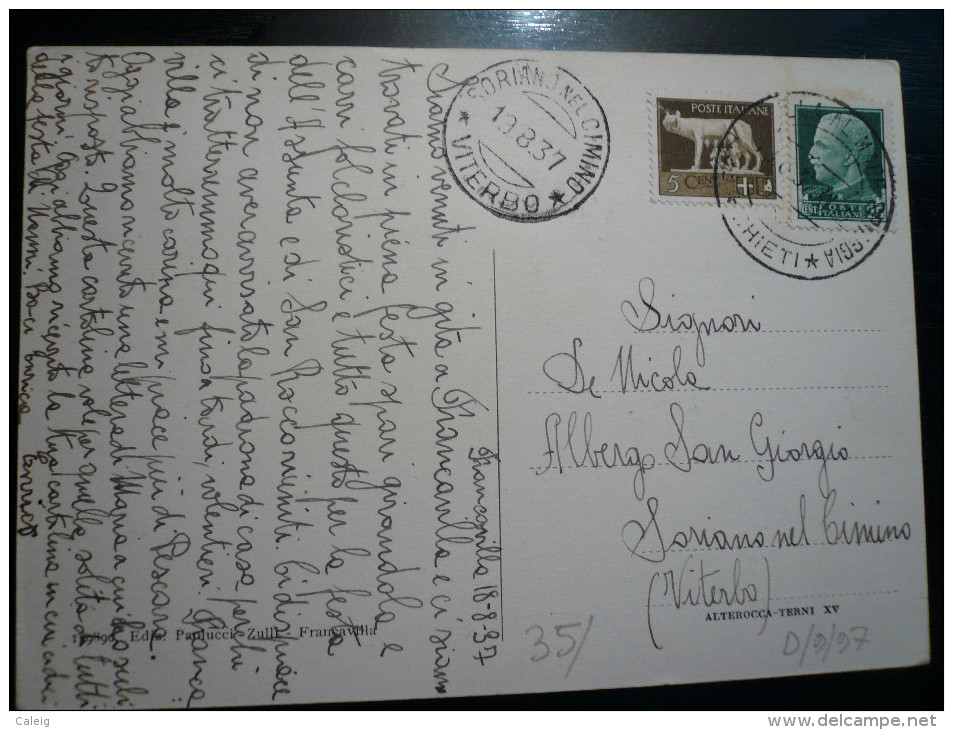 Francavilla 18-8-37
Siamo venuti in gita a Francavilla e ci siamo
trovati in piena festa spari girandola e
carri folcloristici e tutto questo per la festa
dell'Assunta e di San Rocco riuniti. Ci dispiace
di non aver avvisato la padrona di casa perchè
ci tratterremmo qui fino a tardi, volentieri. Franca
villa è molto carina e mi piace più di Pescara.
Oggi abbiamo ricevuto una lettera di
risposto. Questa cartolina vale per quella solita di tutti
i giorni. Oggi abbiamo ricevuto la tua cartolina in cui dici
della festa di Baci Enrica
Enrico
SORIANO NEL CIMINO
19.8.37
* VITERBO *
POSTE ITALIANE
5 CENT
POSTE
ITALIANE
CHIETI *
Signori
De Nicola
Albergo San Giorgio
Soriano nel Cimino
(Viterbo)
ALTEROCCA-TERNI XV
Ediz. Paolucci-Zulli - Francavilla
35/
D/9/97
Caleig
www.delcampe.net